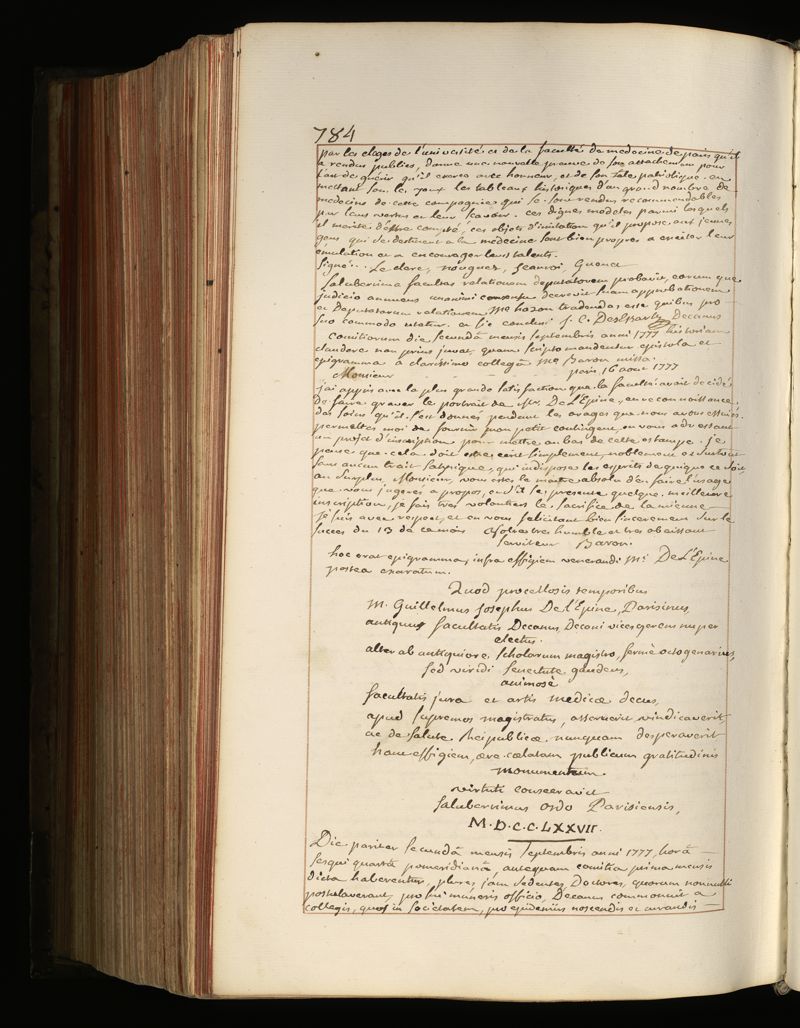 784
par les eloges de l'université et de la faculté de medecine de paris qu'il
a rendus publics, donne une nouvelle preuve de son attachement pour
l'art de guérir qu'il exerce avec honneur, et de son zele patriotique. en
mettant sous les yeux les tableaux historiques d'un grand nombre de
medecins de cette compagnie qui se sont rendus recommendables
par leurs vertus et leur scavoir. ces dignes modeles parmi lesquels
il merite d'estre compté, ces objets d'imitation qu'il propose aux jeunes
gens qui se destinent a la medecine sont bien propres a exciter leur
émulation et a encourager leurs talents.
signé. Le clerc, nouguez, jeanroi Guenet
Saluberrima facultas relationem deputatorum probavit, eorum que
judicio annuens unanimi consensu decrevit suam approbationem
et Deputatorum relationem Mro hazon tradendas esse quibus pro
suo commodo utatur. et sic conclusi J. C. DesEssartz Decanus
Comitiorum die secundâ mensis septembris anni 1777 historiam
claudere non prius juvat, quam scripto mandentur epistola et
epigramma à clarissimo collegâ Mro Baron missa.
Monsieur paris 16 aout 1777
j'ai appris avec la plus grande satisfaction que la faculté avait decidé
De faire graver le portrait de Mr. De L'Epine, en reconnoissance
des soins qu'il s'est donnés pendant les orages que nous avons essuiés.
permettes moi de fournir mon petit contingent, en vous adressant
un projet d'inscription pour mettre au bas de cette estampe. je
pense que cela doit estre ecrit simplement, noblement et surtout
sans aucun trait satyrique, qui indispose les esprits de quique ce soit
au surplus, Monsieur, vous estes le maitre absolu d'en faire l'usage
que vous jugerés a propos, et s'il se presente quelque meilleure
inscription, je fais tres volontiers le sacrifice de la mienne
je suis avec respect, et en vous felicitant bien sincerement sur le
succes du 13 de ce mois Votre tres humble et tres obeissant
serviteur Baron.
hoc erat epigramma, infra effigiem venerandi Mri De L'Epine
postea exaratum.
Quod procellosis temporibus
M. Guillelmus Josephus De l'Epine, Parisinus,
antiquus facultatis Decanus, Decani vices gerens nuper
electus.
alter ab antiquiore scholarum magistro, fermè octogenarius,
sed viridi senectute gaudens,
animosè
facultatis jura et artis medicæ decus,
apud supremos magistratus, asseruerit, vindicaverit,
ac de salute Reipublicæ nunquam desperaverit
hanc effigiem, ære cælatam publicum gratitudinis
monumentum.
virtuti consecravit
saluberrimus ordo Parisiensis,
M.D.C.C.LXXVII.
Die pariter secundâ mensis septembris anni 1777, horâ
sesqui quartâ pomeridianâ, antequam comitia prima mensis
dicta haberentur, plures jam sedentes Doctores, quorum nonnulli
postulaverant, pro sui muneris officio, Decanus commonuit a
collegis, quos in societatem, pro epidemiis noscendis et curandis